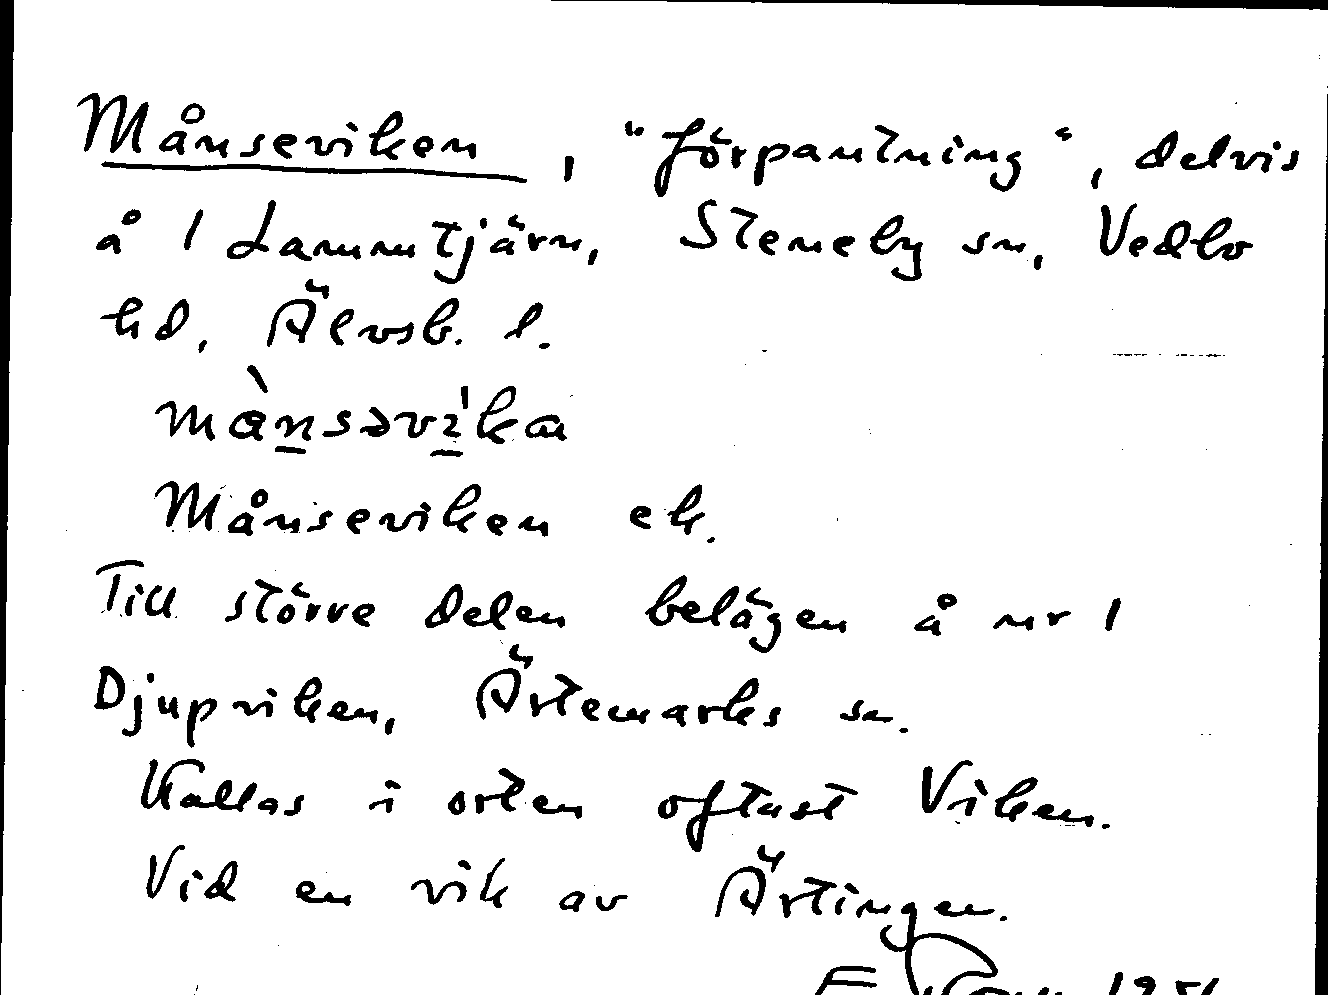 Månseviken, "förpantning", delvis
å 1 Lammtjärn, Steneby sn, Vedbo
hd, Älvsb. l.
mànsəvi̍ka
Månseviken ek.
Till större delen belägen å nr 1
Djupviken, Ärtemarks sn.
Kallas i orten oftast Viken.
Vid en vik av Ärtingen.